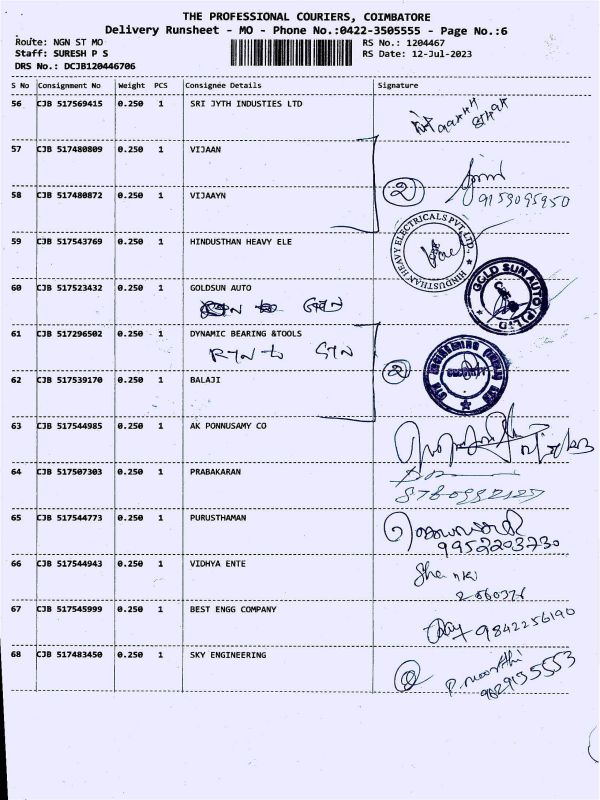 THE PROFESSIONAL COURIERS, COIMBATORE
Delivery Runsheet - MO - Phone No.:0422-3505555 - Page No.:6
Route: NGN ST MO RS No.: 1204467
Staff: SURESH P S RS Date: 12-Jul-2023
DRS No.: DCJB120446706
S No Consignment No Weight PCS Consignee Details Signature
56 CJB 517569415 0.250 1 SRI JYTH INDUSTIES LTD
57 CJB 517480809 0.250 1 VIJAAN
58 CJB 517480872 0.250 1 VIJAAYN
2
9159095950
59 CJB 517543769 0.250 1 HINDUSTHAN HEAVY ELE
HINDUSTHAN HEAVY ELECTRICALS PVT. LTD.,
60 CJB 517523432 0.250 1 GOLDSUN AUTO
GOLD SUN AUTO (P) LTD
61 CJB 517296502 0.250 1 DYNAMIC BEARING &TOOLS
RTN to GTN
SECURITY
62 CJB 517539170 0.250 1 BALAJI
2
63 CJB 517544985 0.250 1 AK PONNUSAMY CO
64 CJB 517507303 0.250 1 PRABAKARAN
65 CJB 517544773 0.250 1 PURUSTHAMAN
9952203730
66 CJB 517544943 0.250 1 VIDHYA ENTE
67 CJB 517545999 0.250 1 BEST ENGG COMPANY
9842256190
68 CJB 517483450 0.250 1 SKY ENGINEERING
P. moorthi